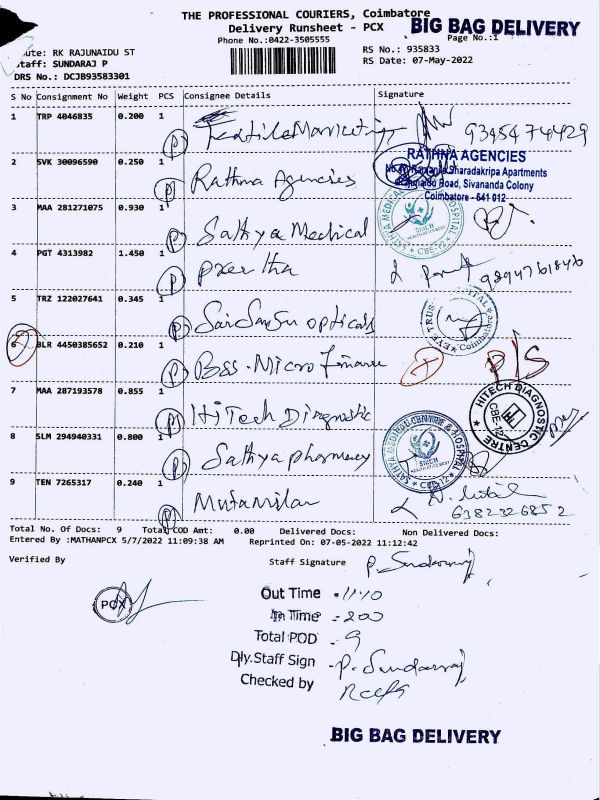 THE PROFESSIONAL COURIERS, Coimbatore
BIG BAG DELIVERY
Delivery Runsheet - PCX
Phone No.:0422-3505555
Page No.:1
ute: RK RAJUNAIDU ST
RS No.: 935833
taff: SUNDARAJ P
RS Date: 07-May-2022
DRS No.: DCJB93583301
S No Consignment No Weight PCS Consignee Details Signature
1 TRP 4046835 0.200 1
P Textile Marketing 9345474429
2 SVK 30096590 0.250 1
P Rathna Agencies
RATHNA AGENCIES
Sharadakripa Apartments
Road, Sivananda Colony
Coimbatore - 641 012
3 MAA 281271075 0.930 1
P Sathya Medical
SATHYA MEDICAL HOSPITAL
CBE-12
4 PGT 4313982 1.450 1
P 9894761846
5 TRZ 122027641 0.345 1
P Sai Opticals
EYE TRUST HOSPITAL
Coimbatore
6 BLR 4450385652 0.210 1
P Bss. Micro Finance
P/S
7 MAA 287193578 0.855 1
P HiTech Diagnostic
HITECH DIAGNOSTIC CENTRE
CBE-12
8 SLM 294940331 0.800 1
P Sathya pharmacy
SATHYA MEDICAL CENTRE & HOSPITAL
CBE-12
9 TEN 7265317 0.240 1
P Mutamilan
6382326852
Total No. Of Docs: 9 Total COD Amt: 0.00 Delivered Docs: Non Delivered Docs:
Entered By :MATHANPCX 5/7/2022 11:09:38 AM Reprinted On: 07-05-2022 11:12:42
Verified By
Staff Signature P. Sundarraj
PCX
Out Time - 11:10
In Time - 200
Total POD - 9
Dly.Staff Sign - P. Sundarraj
Checked by
BIG BAG DELIVERY